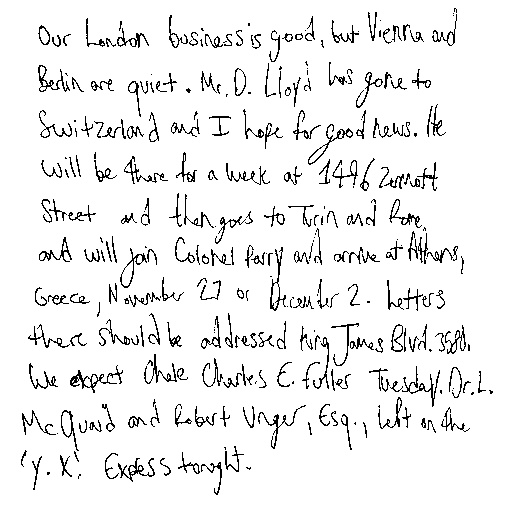 Our London business is good, but Vienna and
Berlin are quiet. Mr. D. Lloyd has gone to
Switzerland and I hope for good news. He
will be there for a week at 1496 Zermott
Street and then goes to Turin and Rome
and will join Colonel Parry and arrive at Athens,
Greece, November 27 or December 2. Letters
there should be addressed King James Blvd. 3580.
We expect Charles E. Fuller Tuesday. Dr. L.
McQuaid and Robert Unger, Esq., left on the
'Y. X.' Express tonight.